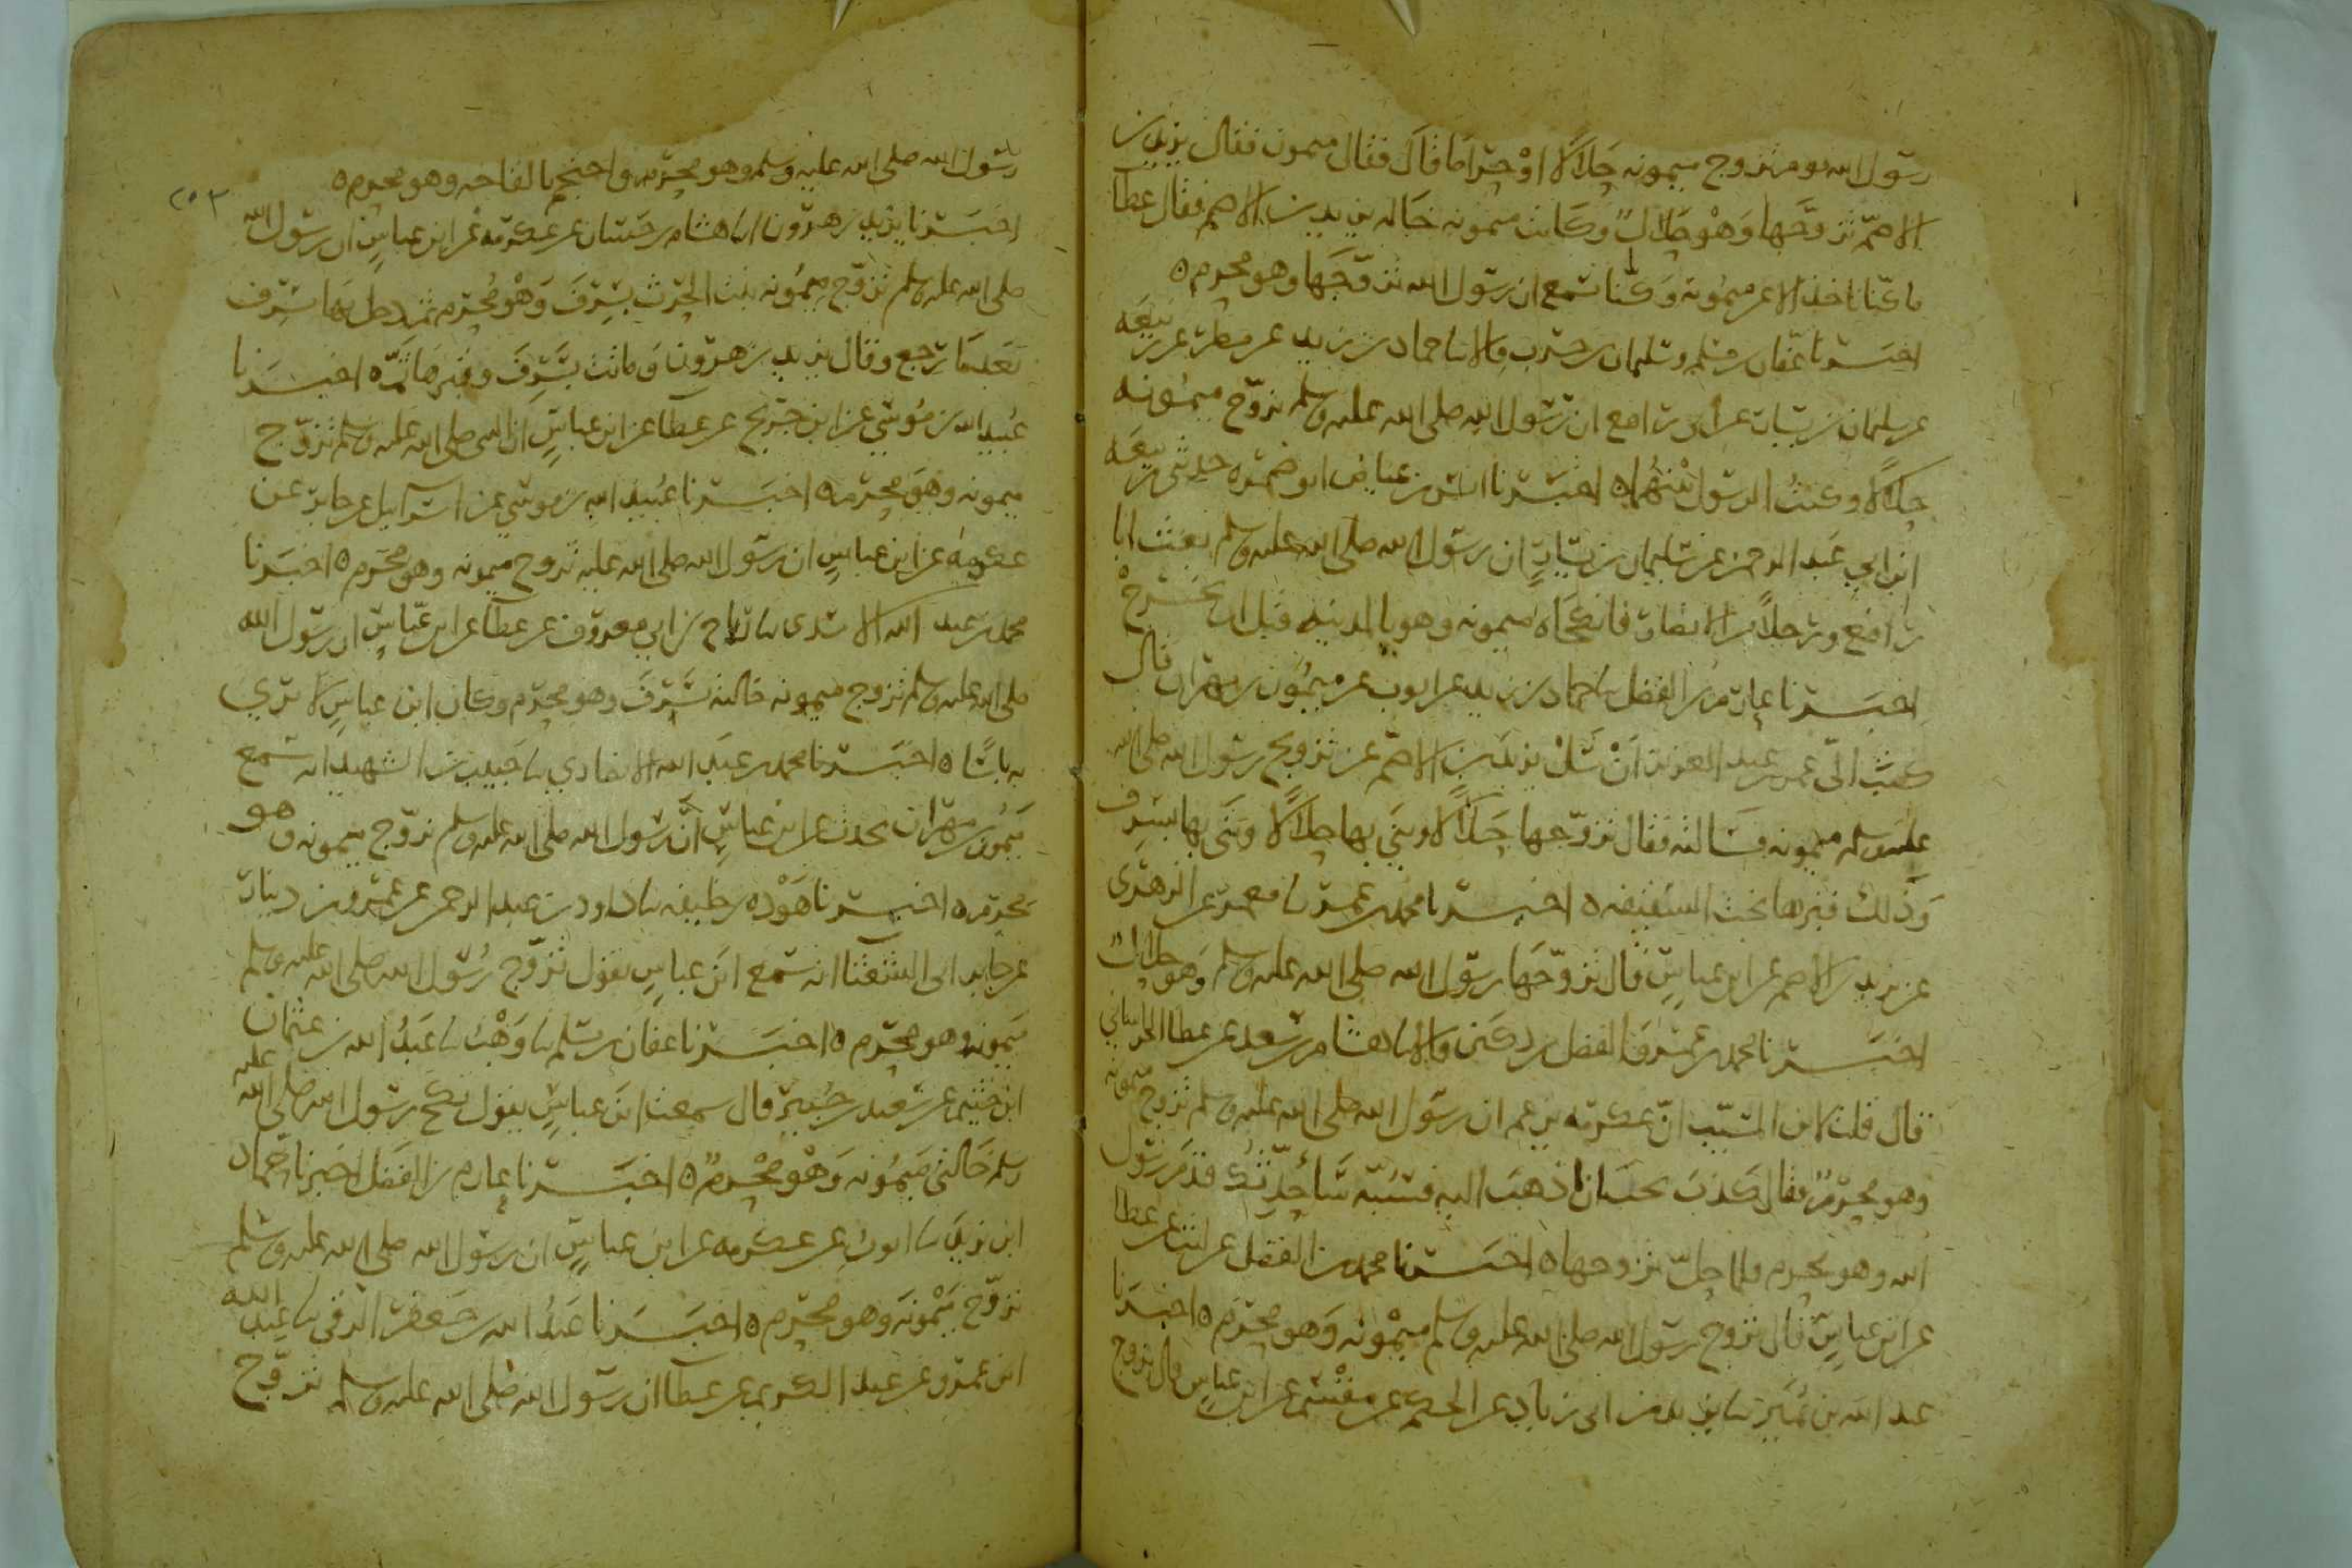 رسول الله يوم تزوج ميمونة حلالا او حراما قال فقال ميمون فقال يزيد بن
الاصم تزوجها وهو حلال وكانت ميمونه خاله يزيد بن الاصم فقال عطا
ما كنا ناخذ الا عن ميمونه وكنا نسمع ان رسول الله تزوجها وهو محرم ٥
اخبرنا عفان بن مسلم وسليمان بن حرب قالا نا حماد بن زيد عن مطر عن ربيعه
عن سليمان بن يسار عن ابى رافع ان رسول الله صلى الله عليه وسلم تزوج ميمونه
حلالا وكنت الرسول بينهما ٥ اخبرنا انس بن عياض ابو ضمره حدثنى ربيعه
ابن ابي عبد الرحمن عن سليمان بن يسار ان رسول الله صلى الله عليه وسلم بعث ابا
رافع ورجلا من الانصار فانكحاه ميمونه وهو بالمدينه قبل ان يخرج
اخبرنا عارم بن الفضل نا حماد بن زيد عن ايوب عن ميمون بن مهران قال
كتب الى عمر بن عبد العزيز ان سل يزيد بن الاصم عن تزويج رسول الله صلى الله
عليه وسلم ميمونه فسالته فقال تزوجها حلالا وبنى بها حلالا وبنى بها بسرف
وذلك قبرها تحت السقيفه ٥ اخبرنا محمد بن عمر نا معمر عن الزهرى
عن يزيد بن الاصم عن ابن عباس قال تزوجها رسول الله صلى الله عليه وسلم وهو حلال
اخبرنا محمد بن عمر والفضل بن دكين قالا نا هشام بن سعد عن عطا الخراساني
قال قلت لابن المسيب ان عكرمه يزعم ان رسول الله صلى الله عليه وسلم تزوج ميمونه
وهو محرم فقال كذب مخبثان اذهب اليه فسبه ساحدثك قدم رسول
الله وهو محرم فلما حل تزوجها ٥ اخبرنا محمد بن الفضل عن ليث عن عطا
عن ابن عباس قال تزوج رسول الله صلى الله عليه وسلم ميمونه وهو محرم ٥ اخبرنا
عبد الله بن نمير نا يزيد بن ابى زياد عن الحكم عن مقسم عن ابن عباس قال تزوج
رسول الله صلى الله عليه وسلم وهو محرم واحتجم بالقاحه وهو محرم ٥
٢٥٣
اخبرنا يزيد بن هرون انا هشام بن حسان عن عكرمه عن ابن عباس ان رسول الله
صلى الله عليه وسلم تزوج ميمونه بنت الحرث بسرف وهو محرم ثم دخل بها بسرف
بعدما رجع وقال يزيد بن هرون وماتت بسرف وقبرها ثم ٥ اخبرنا
عبيد الله بن موسي عن ابن جريج عن عطا عن ابن عباس ان النبى صلى الله عليه وسلم تزوج
ميمونه وهو محرم ٥ اخبرنا عبيد الله بن موسي عن اسراييل عن جابر عن
عكرمه عن ابن عباس ان رسول الله صلى الله عليه تزوج ميمونه وهو محرم ٥ اخبرنا
محمد بن عبد الله الاسدى نا رباح بن ابي معروف عن عطا عن ابن عباس ان رسول الله
صلى الله عليه وسلم تزوج ميمونه خالته بسرف وهو محرم وكان ابن عباس لا يري
به باسا ٥ اخبرنا محمد بن عبد الله الانصاري نا حبيب بن الشهيد انه سمع
ميمون بن مهران يحدث عن ابن عباس ان رسول الله صلى الله عليه وسلم تزوج ميمونه وهو
محرم ٥ اخبرنا هوذه بن خليفه نا داود بن عبد الرحمن عن عمرو بن دينار
عن جابر ابى الشعثا انه سمع ابن عباس يقول تزوج رسول الله صلى الله عليه وسلم
ميمونه وهو محرم ٥ اخبرنا عفان بن مسلم نا وهب نا عبد الله بن عثمان
ابن خثيم عن سعيد بن جبير قال سمعت ابن عباس يقول نكح رسول الله صلى الله عليه
وسلم خالتي ميمونه وهو محرم ٥ اخبرنا عارم بن الفضل اخبرنا حماد
ابن زيد نا ايوب عن عكرمه عن ابن عباس ان رسول الله صلى الله عليه وسلم
تزوج ميمونه وهو محرم ٥ اخبرنا عبد الله بن جعفر الرقي نا عبيد الله
ابن عمرو عن عبد الكريم عن عطا ان رسول الله صلى الله عليه وسلم تزوج